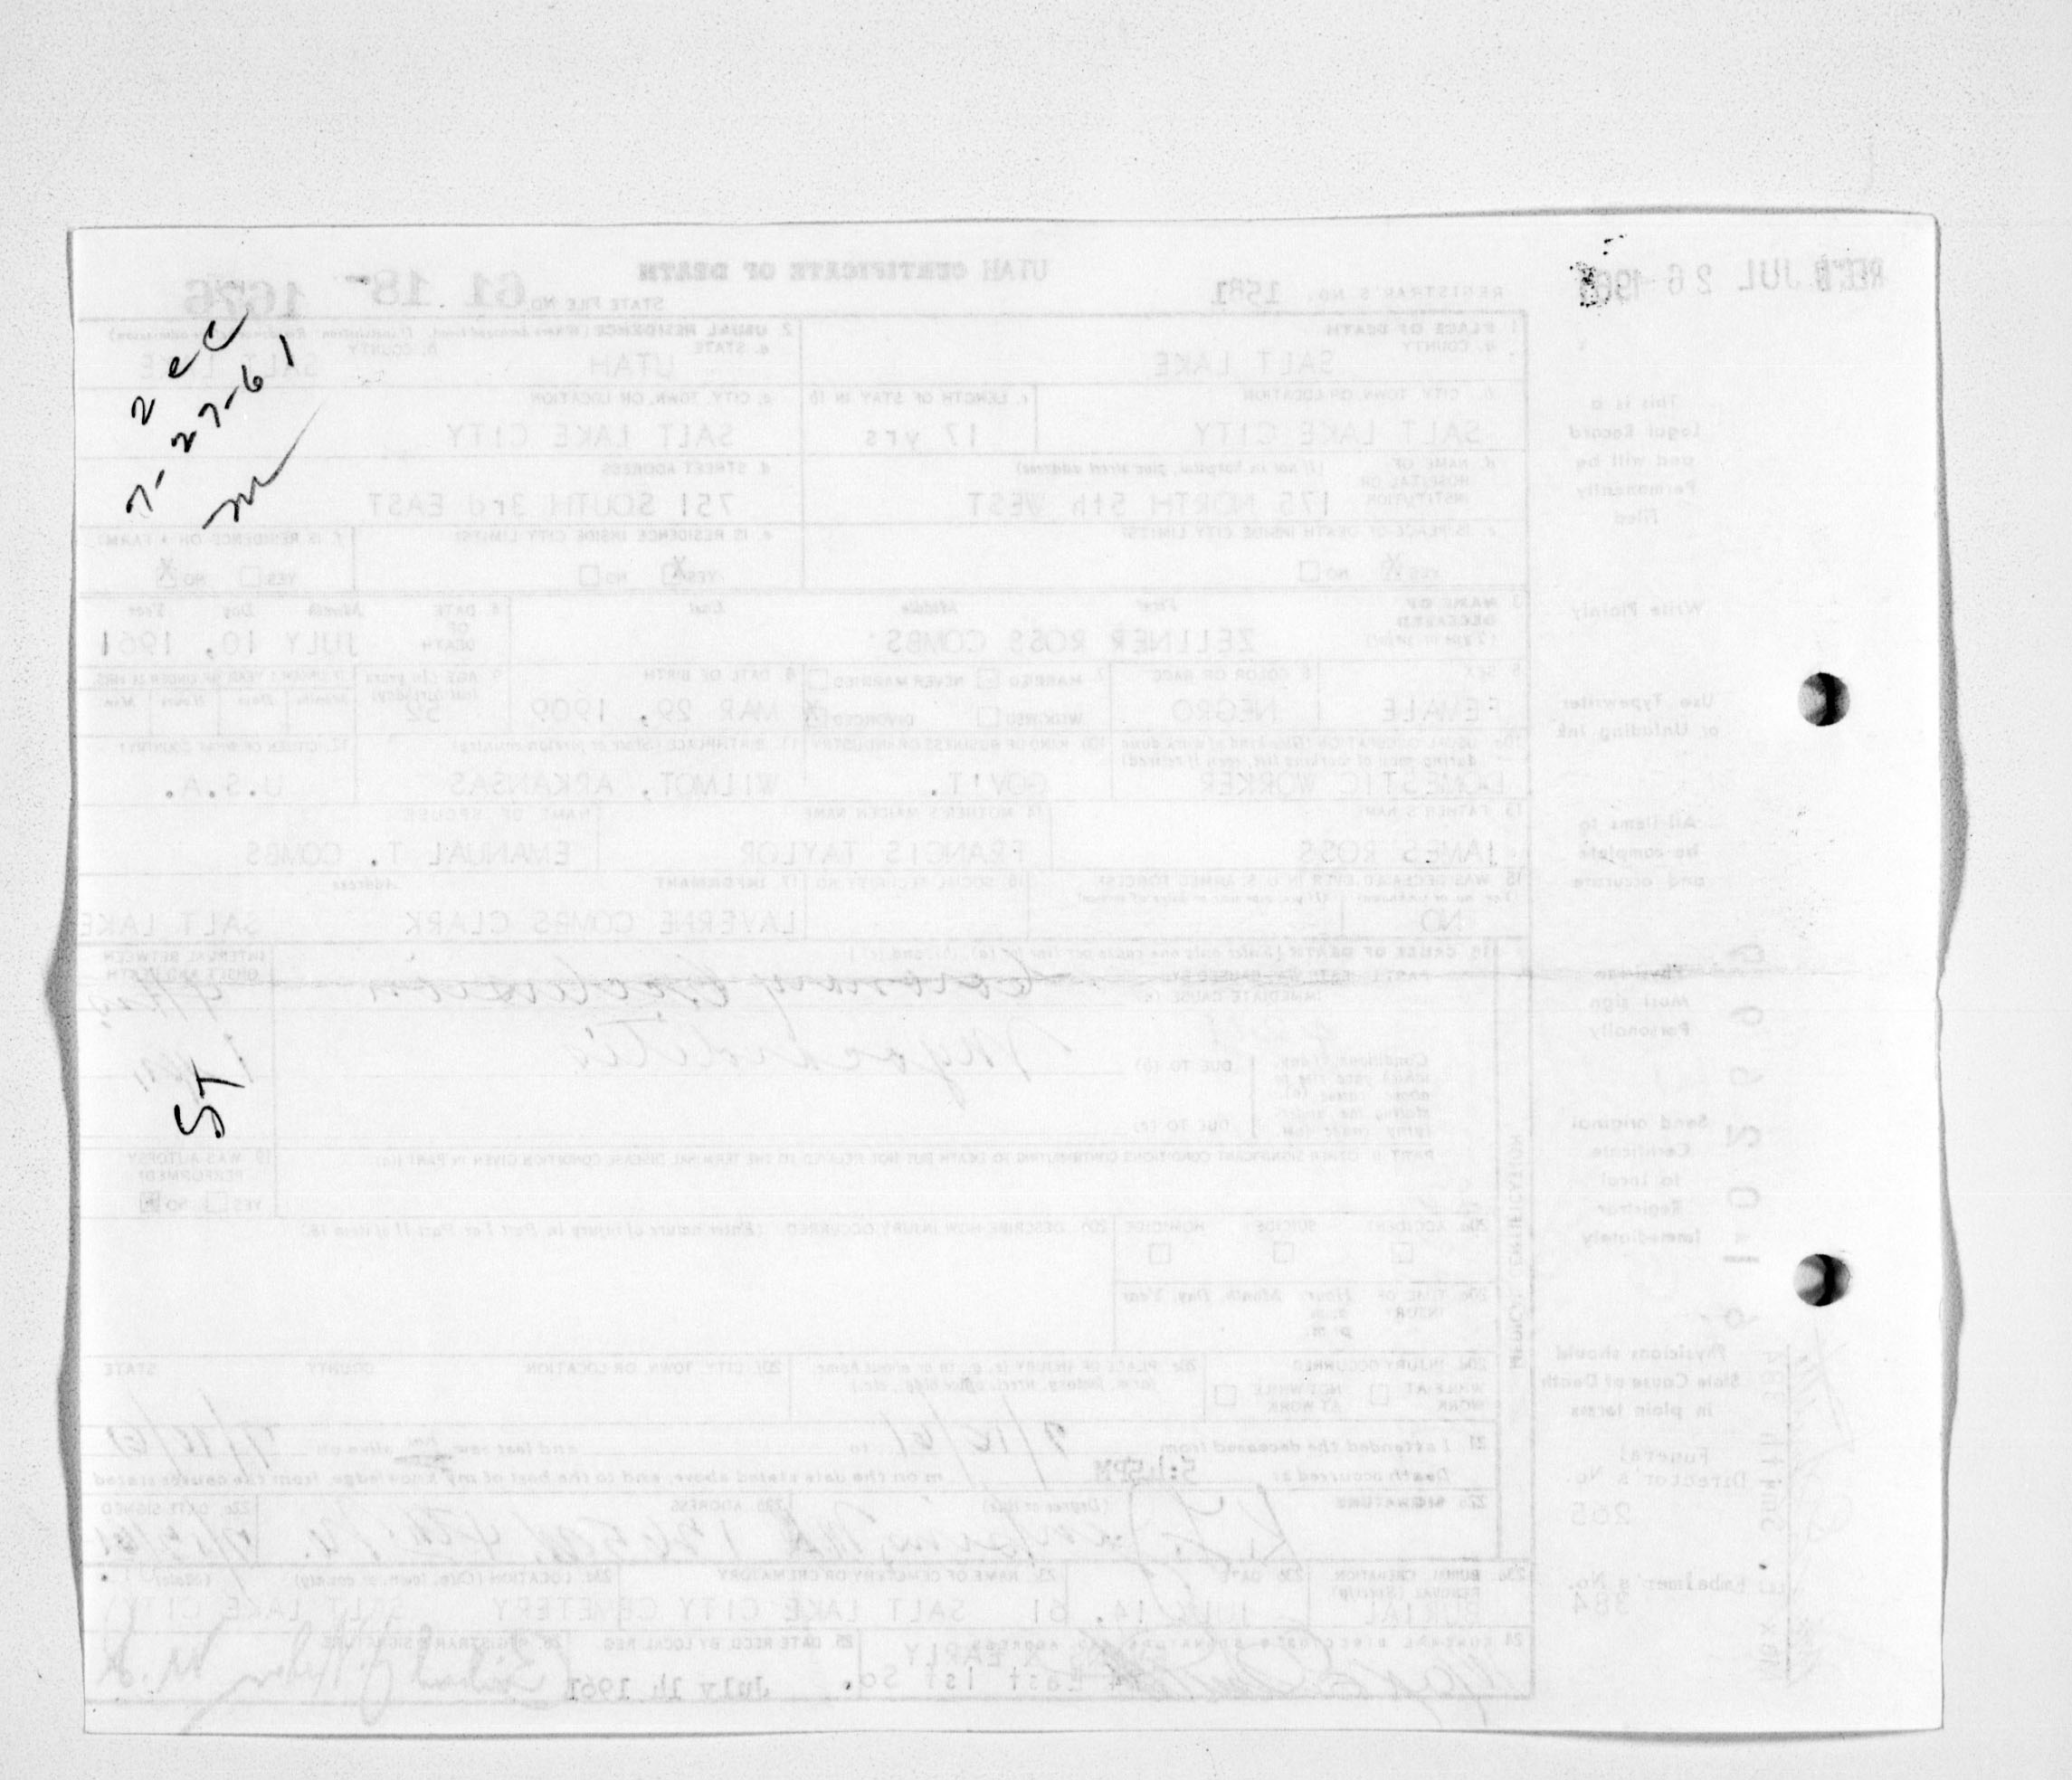 2 cc
7-27-61
ST
REC'D JUL 26 1961
UTAH CERTIFICATE OF DEATH
REGISTRAR'S NO. 1581
STATE FILE NO. 61 18- 1676
1. PLACE OF DEATH
a. COUNTY
SALT LAKE
2. USUAL RESIDENCE (Where deceased lived. If institution: Residence before admission)
a. STATE
UTAH
b. COUNTY
SALT LAKE
b. CITY, TOWN, OR LOCATION
SALT LAKE CITY
c. LENGTH OF STAY IN 1b
17 yrs
c. CITY, TOWN, OR LOCATION
SALT LAKE CITY
d. NAME OF HOSPITAL OR INSTITUTION (If not in hospital, give street address)
175 NORTH 5th WEST
d. STREET ADDRESS
751 SOUTH 3rd EAST
e. IS PLACE OF DEATH INSIDE CITY LIMITS?
YES X NO
e. IS RESIDENCE INSIDE CITY LIMITS?
YES X NO
f. IS RESIDENCE ON A FARM?
YES NO X
3. NAME OF DECEASED (Type or print)
First Middle Last
ZELLNER ROSS COMBS
4. DATE OF DEATH Month Day Year
JULY 10, 1961
5. SEX
FEMALE
6. COLOR OR RACE
NEGRO
7. MARRIED NEVER MARRIED
WIDOWED DIVORCED X
8. DATE OF BIRTH
MAR 29, 1909
9. AGE (In years last birthday)
52
IF UNDER 1 YEAR IF UNDER 24 HRS.
Months Days Hours Min.
10a. USUAL OCCUPATION (Give kind of work done during most of working life, even if retired)
DOMESTIC WORKER
10b. KIND OF BUSINESS OR INDUSTRY
GOV'T.
11. BIRTHPLACE (State or foreign country)
WILMOT, ARKANSAS
12. CITIZEN OF WHAT COUNTRY?
U.S.A.
13. FATHER'S NAME
JAMES ROSS
14. MOTHER'S MAIDEN NAME
FRANCIS TAYLOR
NAME OF SPOUSE
EMANUAL T. COMBS
15. WAS DECEASED EVER IN U.S. ARMED FORCES?
NO
16. SOCIAL SECURITY NO.
17. INFORMANT Address
LAVERNE COMBS CLARK SALT LAKE
18. CAUSE OF DEATH [Enter only one cause per line for (a), (b), and (c).]
INTERVAL BETWEEN ONSET AND DEATH
PART I. DEATH WAS CAUSED BY:
IMMEDIATE CAUSE (a)
Coronary Occlusion
Conditions, if any, which gave rise to above cause (a), stating the under-lying cause last.
DUE TO (b) Myocarditis
DUE TO (c)
PART II. OTHER SIGNIFICANT CONDITIONS CONTRIBUTING TO DEATH BUT NOT RELATED TO THE TERMINAL DISEASE CONDITION GIVEN IN PART I(a)
19. WAS AUTOPSY PERFORMED?
YES NO X
20a. ACCIDENT SUICIDE HOMICIDE
20b. DESCRIBE HOW INJURY OCCURRED. (Enter nature of injury in Part I or Part II of item 18.)
20c. TIME OF INJURY Hour Month, Day, Year
a. m.
p. m.
20d. INJURY OCCURRED
WHILE AT WORK NOT WHILE AT WORK
20e. PLACE OF INJURY (e. g., in or about home, farm, factory, street, office bldg., etc.)
20f. CITY, TOWN, OR LOCATION COUNTY STATE
21. I attended the deceased from 7/10/61 to and last saw her alive on 7/10/61
Death occurred at 5:45PM m on the date stated above, and to the best of my knowledge, from the causes stated
22a. SIGNATURE (Degree or title)
22b. ADDRESS
22c. DATE SIGNED
23a. BURIAL, CREMATION, REMOVAL (Specify)
BURIAL
23b. DATE
JULY 14, 61
23c. NAME OF CEMETERY OR CREMATORY
SALT LAKE CITY CEMETERY
23d. LOCATION (City, town, or county) (State)
SALT LAKE CITY
24. FUNERAL DIRECTOR'S SIGNATURE AND ADDRESS
East 1st So.
25. DATE RECD. BY LOCAL REG.
July 14 1961
26. REGISTRAR'S SIGNATURE
MEDICAL CERTIFICATION
This is a
Legal Record
and will be
Permanently
Filed
Write Plainly
Use Typewriter
or Unfading Ink
All items to
be complete
and accurate
Physician
Must sign
Personally
Send original
Certificate
to local
Registrar
Immediately
Physicians should
State Cause of Death
in plain terms
Funeral
Director's No.
265
Embalmer's No.
384